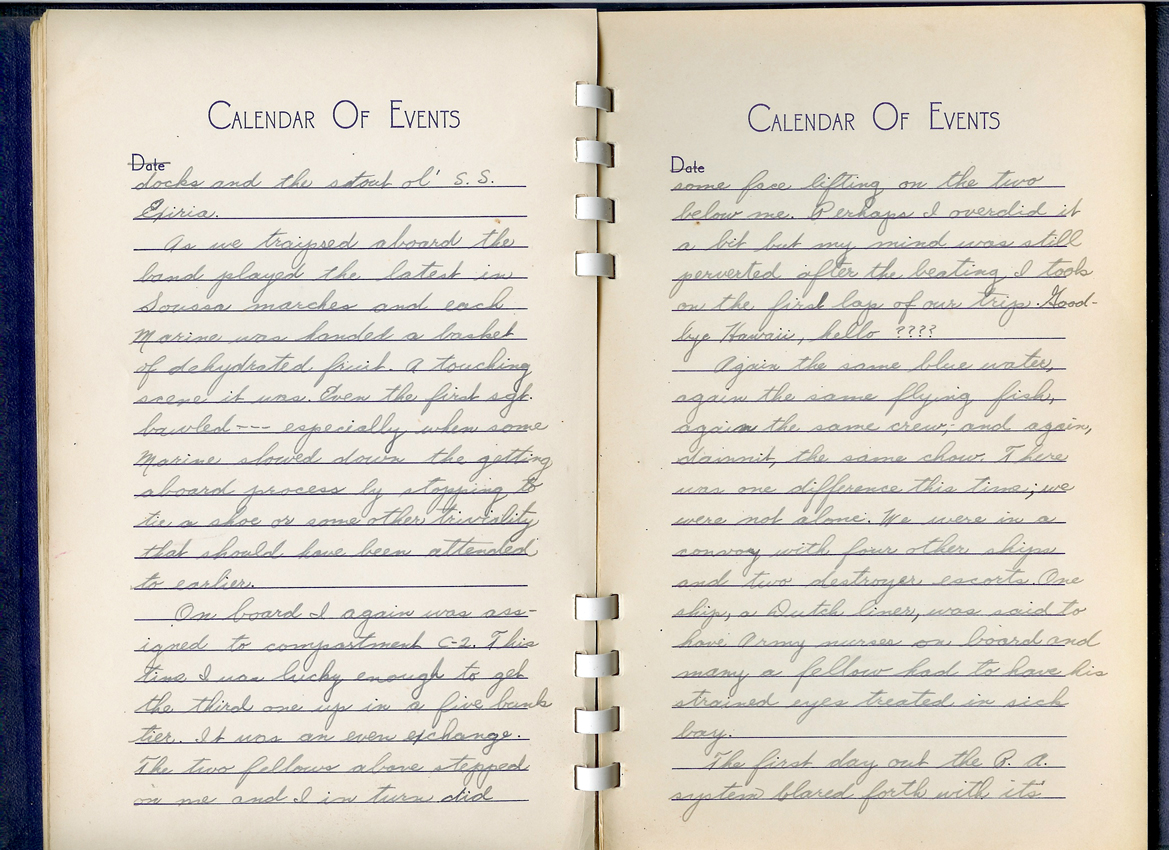 CALENDAR OF EVENTS
Date
docks and the stout ol' S.S.
Epiria.
As we traipsed aboard the
band played the latest in
Soussa marches and each
Marine was handed a basket
of dehydrated fruit. A touching
scene it was. Even the first sgt.
bawled --- especially when some
Marine slowed down the getting
aboard process by stopping to
tie a shoe or some other triviality
that should have been attended
to earlier.
On board I again was ass-
igned to compartment C-2. This
time I was lucky enough to get
the third one up in a five bunk
tier. It was an even exchange.
The two fellows above stepped
on me and I in turn did
CALENDAR OF EVENTS
Date
some face lifting on the two
below me. Perhaps I overdid it
a bit but my mind was still
perverted after the beating I took
on the first lap of our trip. Good-
bye Hawaii, hello ????
Again the same blue water,
again the same flying fish,
again the same crew; and again,
damnit, the same chow. There
was one difference this time; we
were not alone. We were in a
convoy with four other ships
and two destroyer escorts. One
ship, a Dutch liner, was said to
have Army nurses on board and
many a fellow had to have his
strained eyes treated in sick
bay.
The first day out the P. A.
system blared forth with its